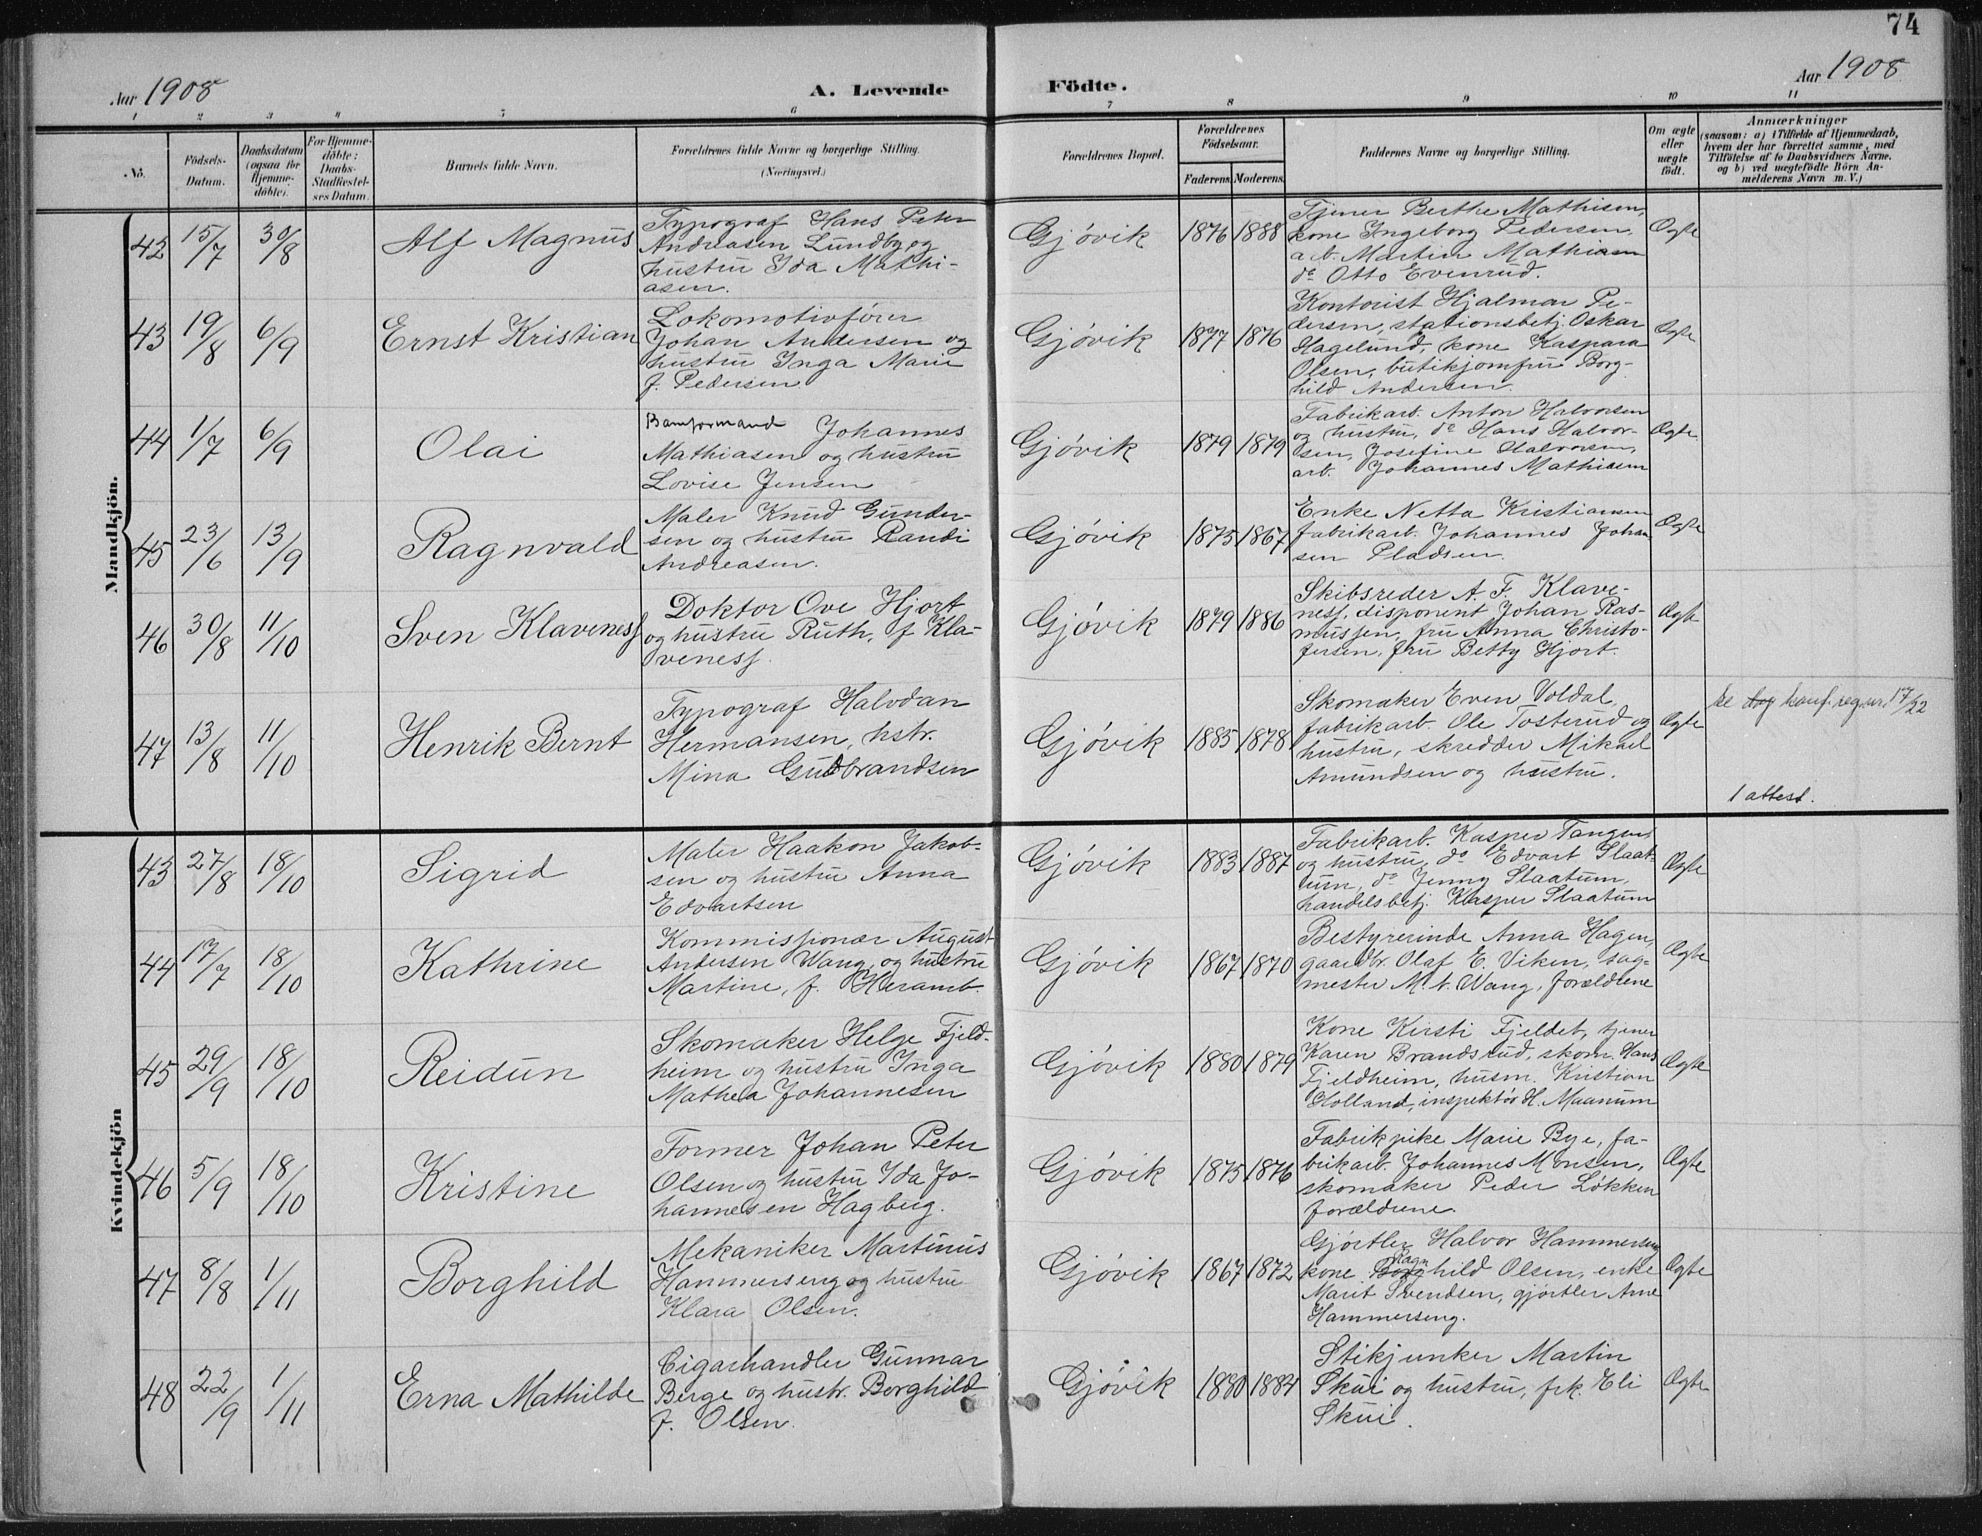 74
Aar 1908
A. Levende Födte.
Aar 1908
1 2 3 4 5 6 7 8 9 10 11
No.
Födsels-
Datum.
Daabsdatum
(ogsaa for
Hjemme-
döbte).
For Hjemme-
döbte:
Daabs-
Stadfæstel-
ses Datum.
Barnets fulde Navn.
Forældrenes fulde Navne og borgerlige Stilling.
(Næringsvei.)
Forældrenes Bopæl.
Forældrenes
Födselsaar.
Faderens. Moderens.
Faddernes Navne og borgerlige Stilling.
Om ægte
eller
uægte
født.
Anmærkninger
(saasom: a) i Tilfælde af Hjemmedaab,
hvem der har forrettet samme, med
Tilföielse af to Daabsvidners Navne,
og b) ved uægtefödte Börn An-
melderens Navn m. V.)
Mandkjön.
42 15/7 30/8 Alf Magnus
Typograf Hans Peter
Andreasen Lundby og
hustru Ida Mathi-
asen.
Gjøvik 1876 1888
Tjener Berthe Mathisen,
kone Ingeborg Pedersen,
arb. Martin Mathiasen
do Otto Evenrud.
Ægte
43 19/8 6/9 Ernst Kristian
Lokomotivfører
Johan Andersen og
hustru Inga Marie
f. Pedersen
Gjøvik 1877 1876
Kontorist Hjalmar Pe-
dersen, stationsbetj. Oskar
Hagelund, kone Kaspara
Olsen, butikjomfru Borg-
hild Andersen.
Ægte
44 1/7 6/9 Olai
Banformand Johannes
Mathiasen og hustru
Lovise Jensen
Gjøvik 1879 1879
Fabrikarb. Anton Halvorsen
og hustru, do Hans Halvor-
sen, Josefine Halvorsen,
arb. Johannes Mathisen
Ægte
45 23/6 13/9 Ragnvald
Maler Knud Gunder-
sen og hustru Randi
Andreasen.
Gjøvik 1875 1867
Enke Netta Kristiansen
fabrikarb. Johannes Johan
sen Pladsen.
Ægte
46 30/8 11/10 Sven Klaveness
Doktor Ove Hjort
og hustru Ruth, f. Kla-
veness.
Gjøvik 1879 1886
Skibsreder A. F. Klave-
ness, disponent Johan Ras-
mussen, fru Anna Christo-
fersen, fru Betty Hjort.
Ægte
47 13/8 11/10 Henrik Bernt
Typograf Halvdan
Hermansen, hstr.
Mina Gudbrandsen
Gjøvik 1885 1878
Skomaker Even Voldal,
fabrikarb. Ole Tosterud og
hustru, skredder Mikael
Amundsen og hustru.
Ægte
se konf. reg. nr. 17/22
1 attest.
Kvindekjön
43 27/8 18/10 Sigrid
Maler Haakon Jakob-
sen og hustru Anna
Edvartsen
Gjøvik 1883 1887
Fabrikarb. Kasper Tangen
og hustru, do Edvart Slaat-
tum, do Jenny Slaatum,
handelsbetj. Kasper Slaatum
Ægte
44 17/7 18/10 Kathrine
Kommissjonær August
Andersen Wang og hustru
Martine, f. Heramb.
Gjøvik 1867 1870
Bestyrerinde Anna Hagen,
gaardbr. Olaf E. Viken, sag-
mester M. A. Wang, forældrene
Ægte
45 29/9 18/10 Reidun
Skomaker Helge Fjeld-
heim og hustru Inga
Mathea Johannesen
Gjøvik 1880 1879
Kone Kirsti Fjeldet, tjener
Karen Brandsrud, skom. Hans
Fjeldheim, husm. Kristian
Holland, inspektør H. Maanum
Ægte
46 5/9 18/10 Kristine
Former Johan Peter
Olsen og hustru Ida Jo-
hannesen Hagberg.
Gjøvik 1875 1876
Fabrikpike Marie Bye, fa-
brikarb. Johannes Monsen,
skomaker Peder Løkken
forældrene.
Ægte
47 8/8 1/11 Borghild
Mekaniker Martinus
Hammerseng og hustru
Klara Olsen.
Gjøvik 1867 1872
Gjørtler Halvor Hammerseng
kone Ragnhild Olsen, enke
Marit Svendsen, gjørtler Arne
Hammerseng.
Ægte
48 22/9 1/11 Erna Mathilde
Cigarhandler Gunnar
Berge og hustr. Borghild
f. Olsen.
Gjøvik 1880 1884
Stikjunker Martin
Skui og hustru, frk. Eli
Skui.
Ægte